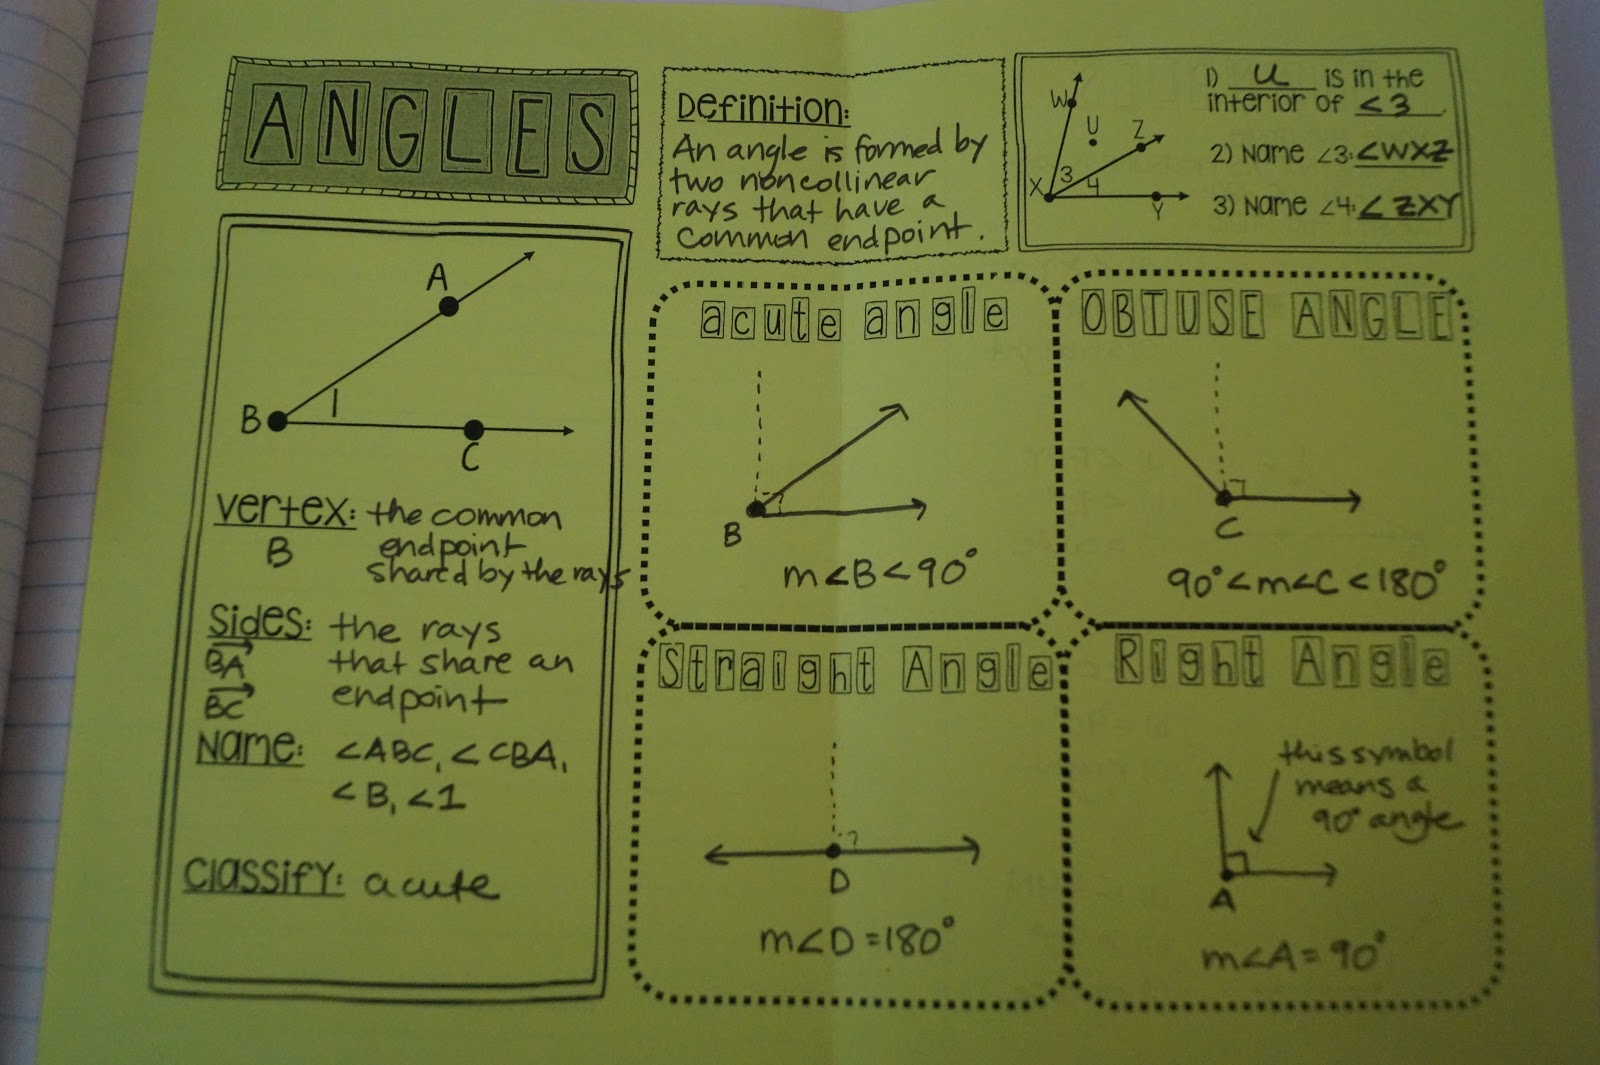 ANGLES
Definition:
An angle is formed by
two noncollinear
rays that have a
common endpoint.
W
U
Z
X
3
4
Y
1) U is in the
interior of ∠3.
2) Name ∠3: ∠WXZ
3) Name ∠4: ∠ZXY
A
B
1
C
Vertex: the common
B endpoint
shared by the rays
Sides: the rays
BA→ that share an
BC→ endpoint
Name: ∠ABC, ∠CBA,
∠B, ∠1
Classify: acute
acute angle
B
m∠B<90°
OBTUSE ANGLE
C
90°<m∠C<180°
Straight Angle
D
m∠D=180°
Right Angle
this symbol
means a
90° angle
A
m∠A=90°